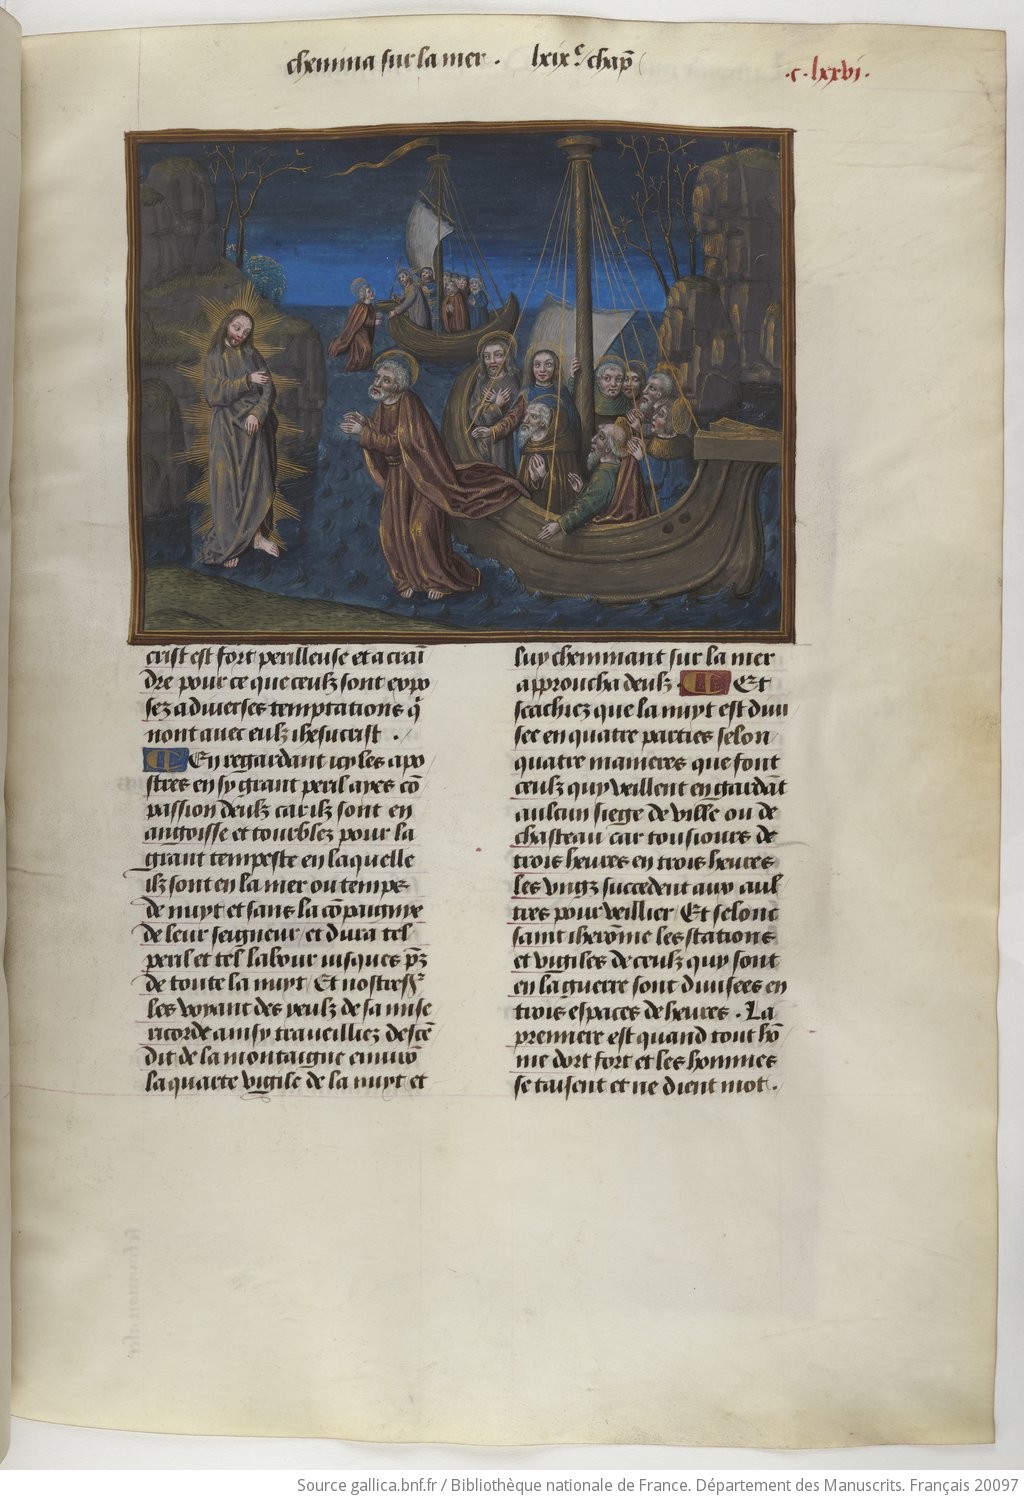 chemina sur la mer . lxixᵉ chap̄
.c. lxxvi.
crist est fort perilleuse et a crai
dre pour ce que ceulz sont expo
sez a diverses temptations q̄
nont avec eulz ihesucrist .
En regardant icy les apo
stres en sy grant peril ayes cō
passion deulz car ilz sont en
angoisse et tourblez pour la
grant tempeste en laquelle
ilz sont en la mer ou temps
de nuyt et sans la cōpaignie
de leur seigneur et dura tel
peril et tel labour iusques p̄z
de toute la nuyt Et nostre sr̄
les voyant des yeulz de sa mise
ricorde ainsy traveilliez descē
dit de la montaigne environ̄
la quarte vigile de la nuyt et
luy chemmant sur la mer
approucha deulz . Et
scachiez que la nuyt est divi
see en quatre parties selon
quatre manieres que font
ceulz quy veillent en gardāt
aulcun siege de ville ou de
chasteau car tousiours de
trois heures en trois heures
les ungz succedent aux aul
tres pour veillier Et selonc
saint iherōme les stations
et vigiles de ceulz quy sont
en la guerre sont divisees en
trois espaces de heures . La
premiere est quand tout hō
me dort fort et les hommes
se taisent et ne dient mot .
Source gallica.bnf.fr / Bibliothèque nationale de France. Département des Manuscrits. Français 20097